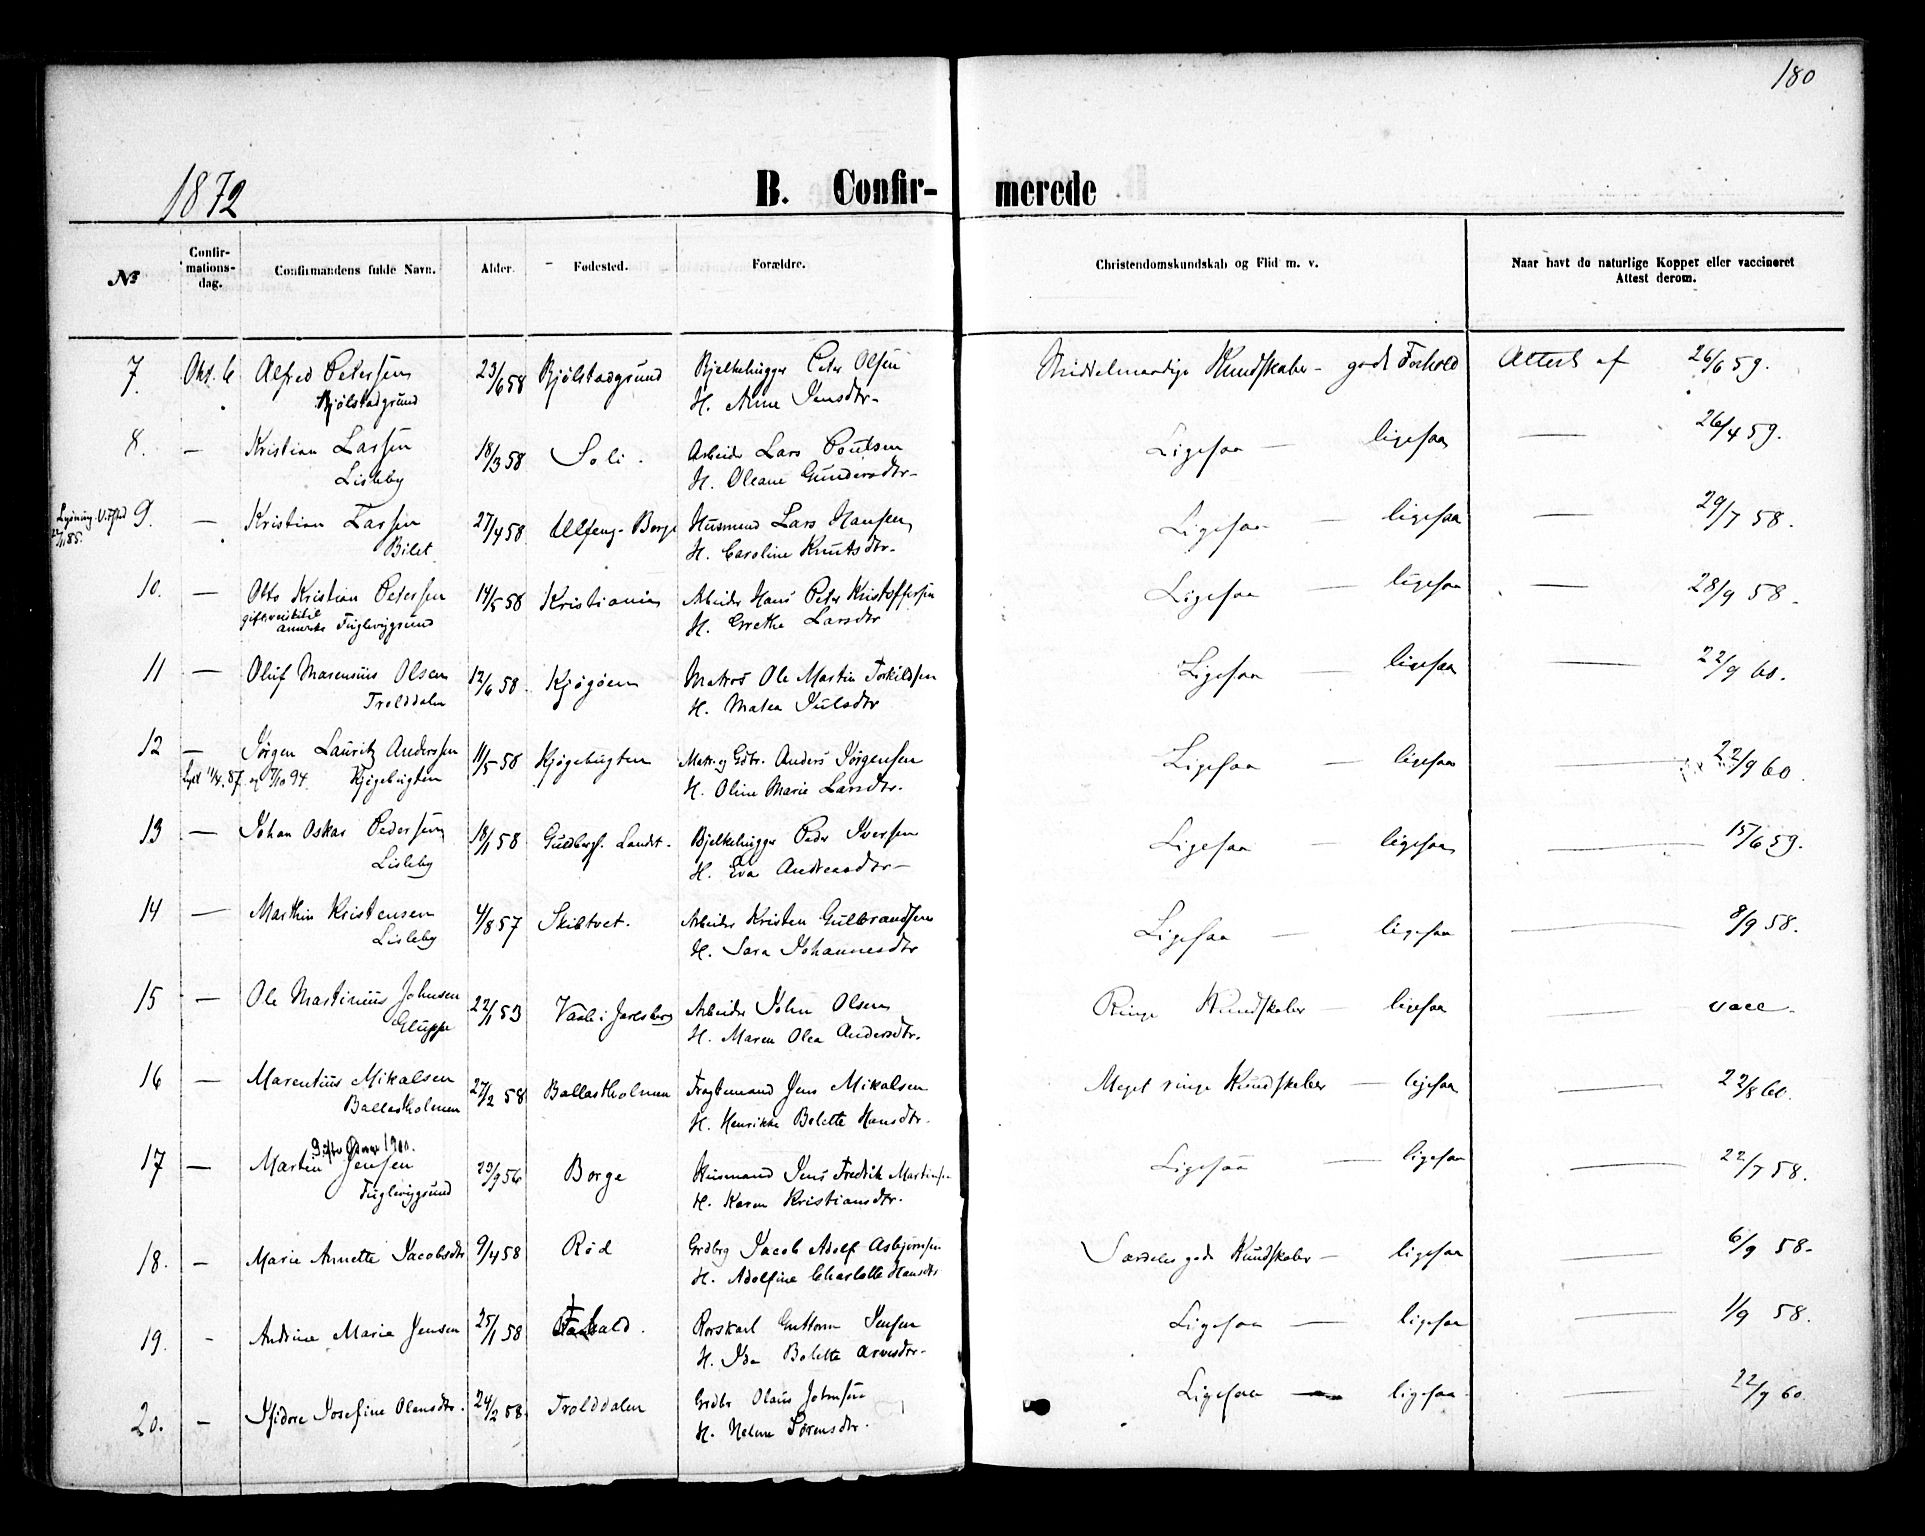 180
1872
B. Confir- merede
№
Confir-
mations-
dag.
Confirmandens fulde Navn.
Alder.
Fødested.
Forældre.
Christendomskundskab og Flid m. v.
Naar havt de naturlige Kopper eller vaccineret
Attest derom.
7. Okt. 6 Alfred Petersen 23/6 58 Kjølstadgrund Bjelkehugger Peter Olsen Middelmaadige Kundskaber - godt Forhold Attest af 26/6 59.
Kjølstadgrund H. Anne Jensdtr.
8. — Kristian Larsen 18/3 58 Soli. Arbeider Lars Poulsen Ligesaa — ligesaa — 26/4 59.
Lisleby H. Oleane Gundersdtr.
Lysning 9. — Kristian Larsen 27/4 58 Ulfeng - Borge Husmand Lars Hansen Ligesaa — ligesaa — 29/7 58.
85. Bilet H. Caroline Knutsdtr.
10. — Otto Kristian Petersen 14/5 58 Kristiania Arbeider Hans Peter Kristoffersen Ligesaa — ligesaa — 28/9 58.
Fuglevigsund H. Grethe Larsdtr
11 — Oluf Marensius Olsen 12/6 58 Kjøgøen Matros Ole Martin Torkildsen Ligesaa — ligesaa — 22/9 60.
Trolddalen H. Matea Julsdtr
12 — Jørgen Lauritz Anderssen 11/5 58 Kjøgebugten Matr. og Gdbr. Anders Jørgensen Ligesaa — ligesaa — 22/9 60.
87 og 94. Kjøgebugten H. Oline Marie Larsdtr.
13 — Johan Oskar Pedersen 18/1 58 Guldbergs. Landet. Bjelkehugger Peder Iversen Ligesaa — ligesaa — 15/6 59.
Lisleby H. Eva Andreasdtr
14 — Marthin Kristensen 4/8 57 Skibtvet. Arbeider Kristen Gulbrandsen Ligesaa — ligesaa — 8/9 58.
Lisleby H. Sara Johannesdtr
15 — Ole Martinius Johnsen 22/1 53 Vaale i Jarlsberg Arbeider John Olsen Ringe Kundskaber — ligesaa — vacc.
Gluppe H. Maren Olea Andersdtr.
16 — Marentius Mikalsen 27/2 58 Ballastholmen Fragtemand Jens Mikalsen Meget ringe Kundskaber — ligesaa — 22/8 60.
Ballastholmen H. Henrikke Bolette Hansdtr.
1900.
17 — Martin Jensen 23/9 56 Borge Husmand Jens Fredrik Martinsen Ligesaa — ligesaa — 22/7 58.
Fuglevigsund H. Karen Kristiansdtr.
18. — Marie Annette Jacobsdtr 9/4 58 Rød Grdbrg Jacob Adolf Asbjørnsen Særdeles gode Kundskaber — ligesaa — 6/9 58.
H. Adolfine Charlotte Hansdtr
19. - Andrine Marie Jensen 25/1 58 Rorskarl Guttorm Jensen Ligesaa — ligesaa — 1/9 58.
H. Ida Bolette Arnesdtr.
20. — Isidore Josefine Olausdtr. 24/2 58 Trolddalen Grdbr Olaus Johnsen Ligesaa — ligesaa — 22/9 60.
H. Helene Sørensdtr.